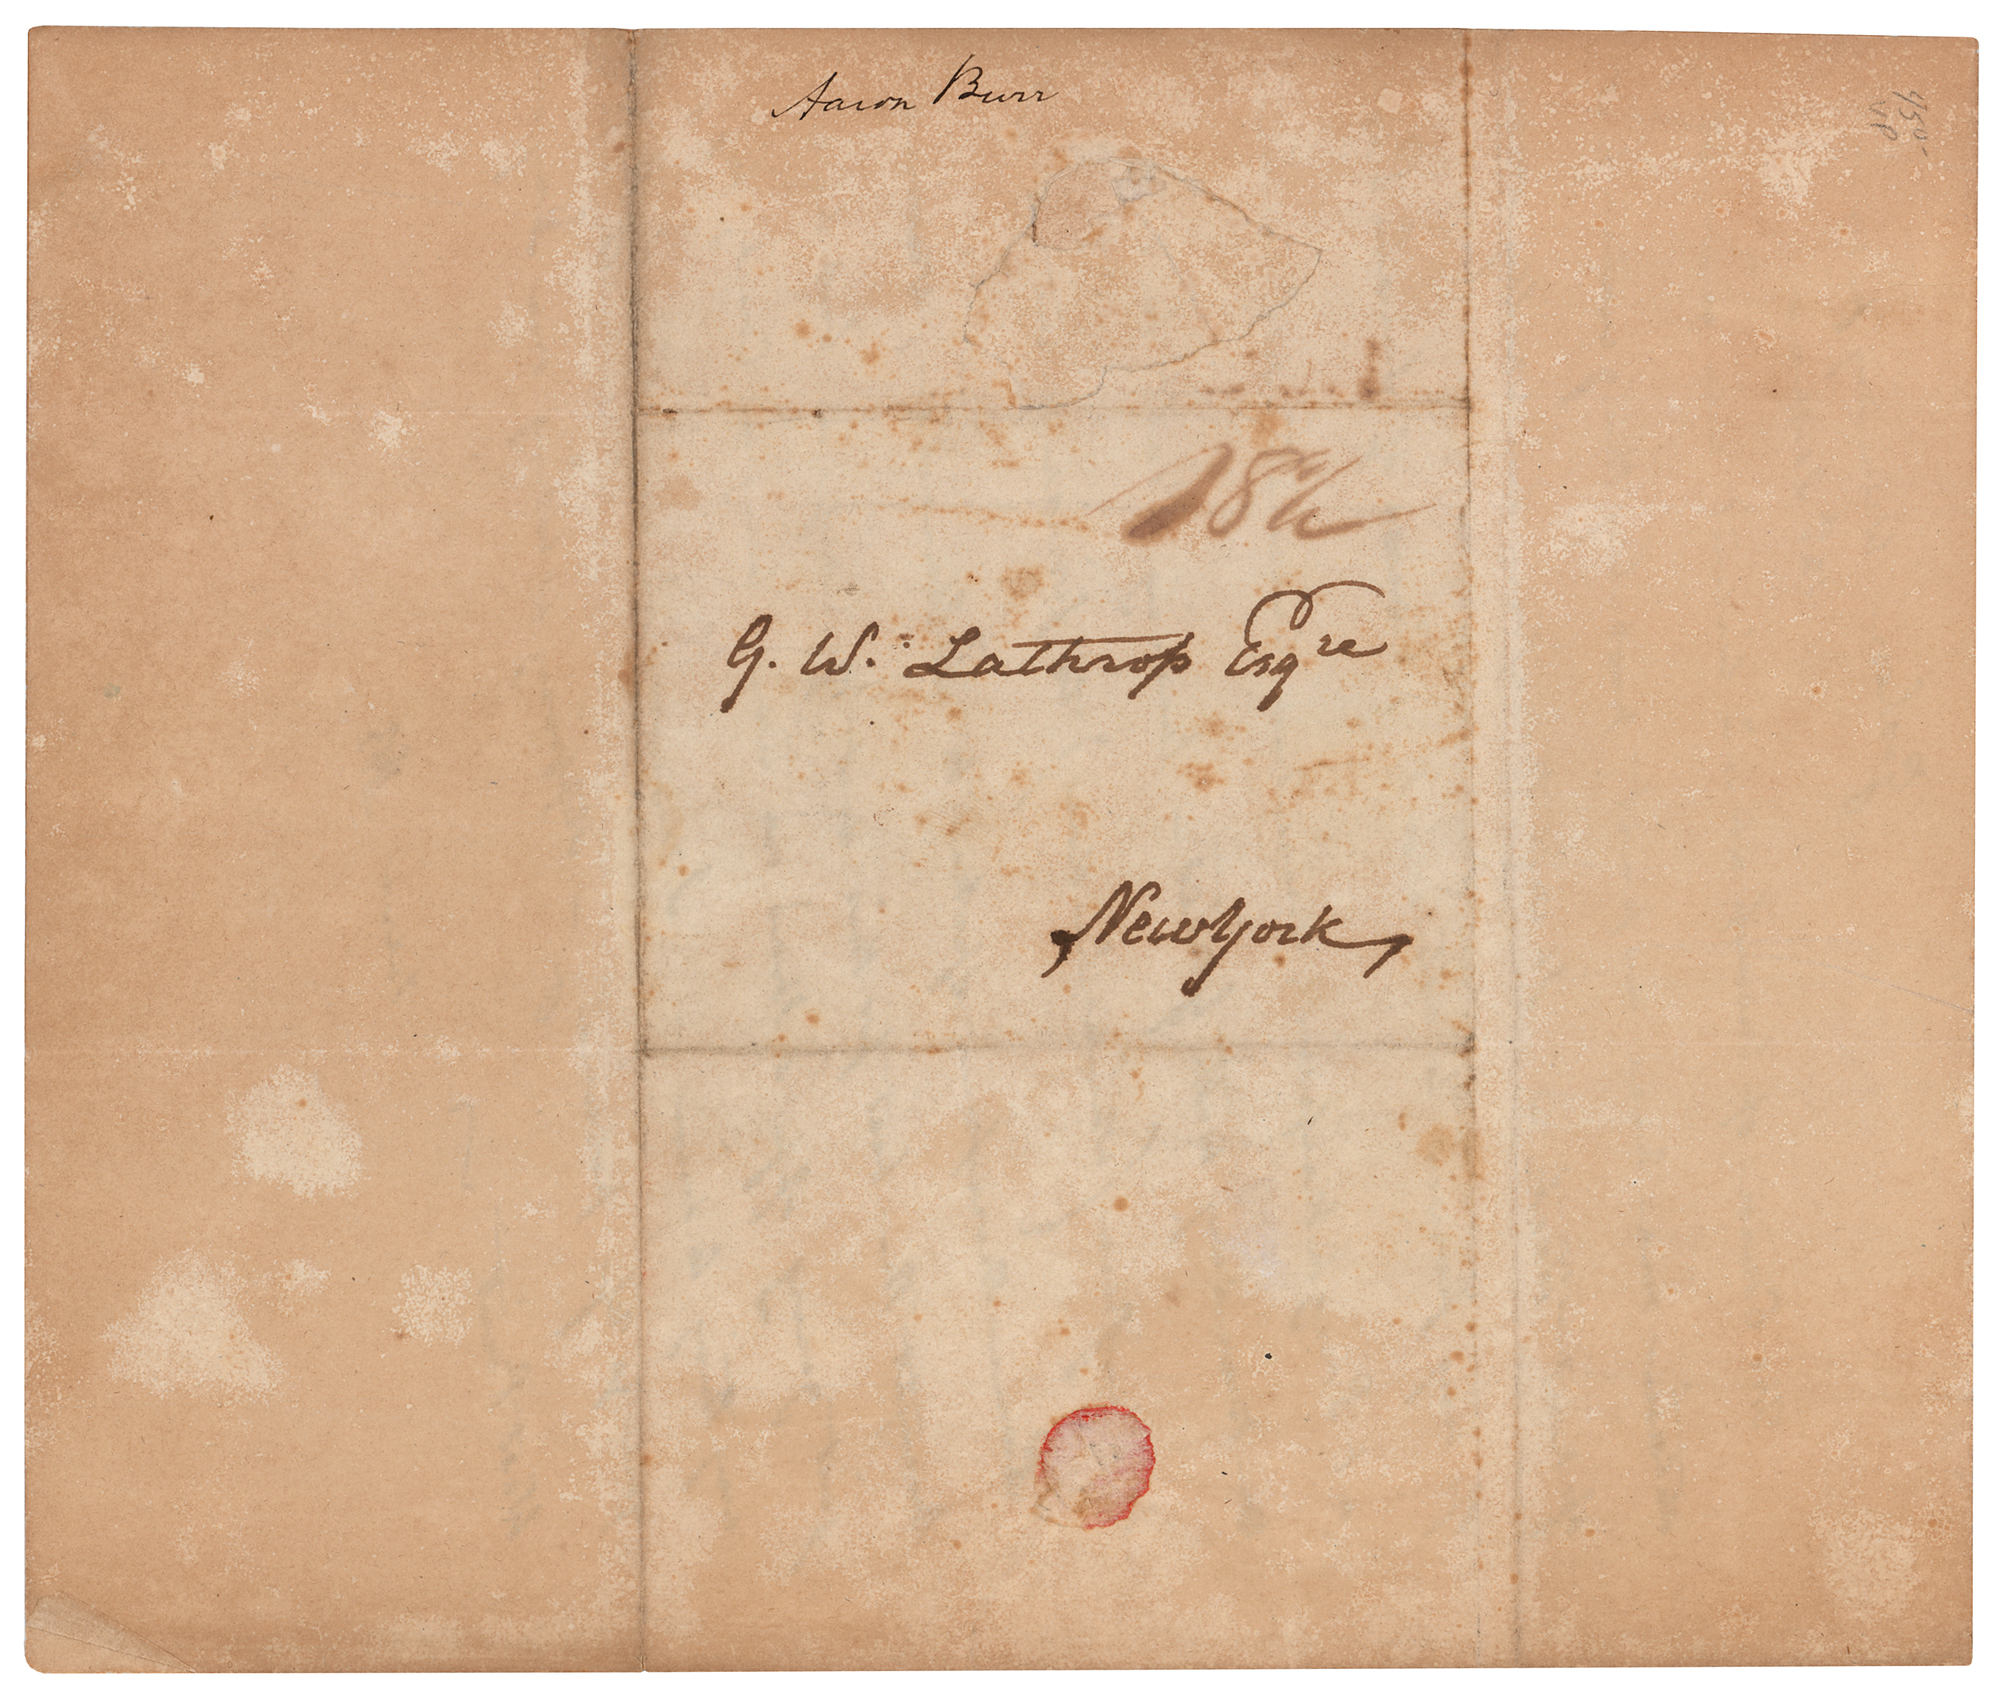 Aaron Burr
18½
G. W. Lathrop Esqre
New York